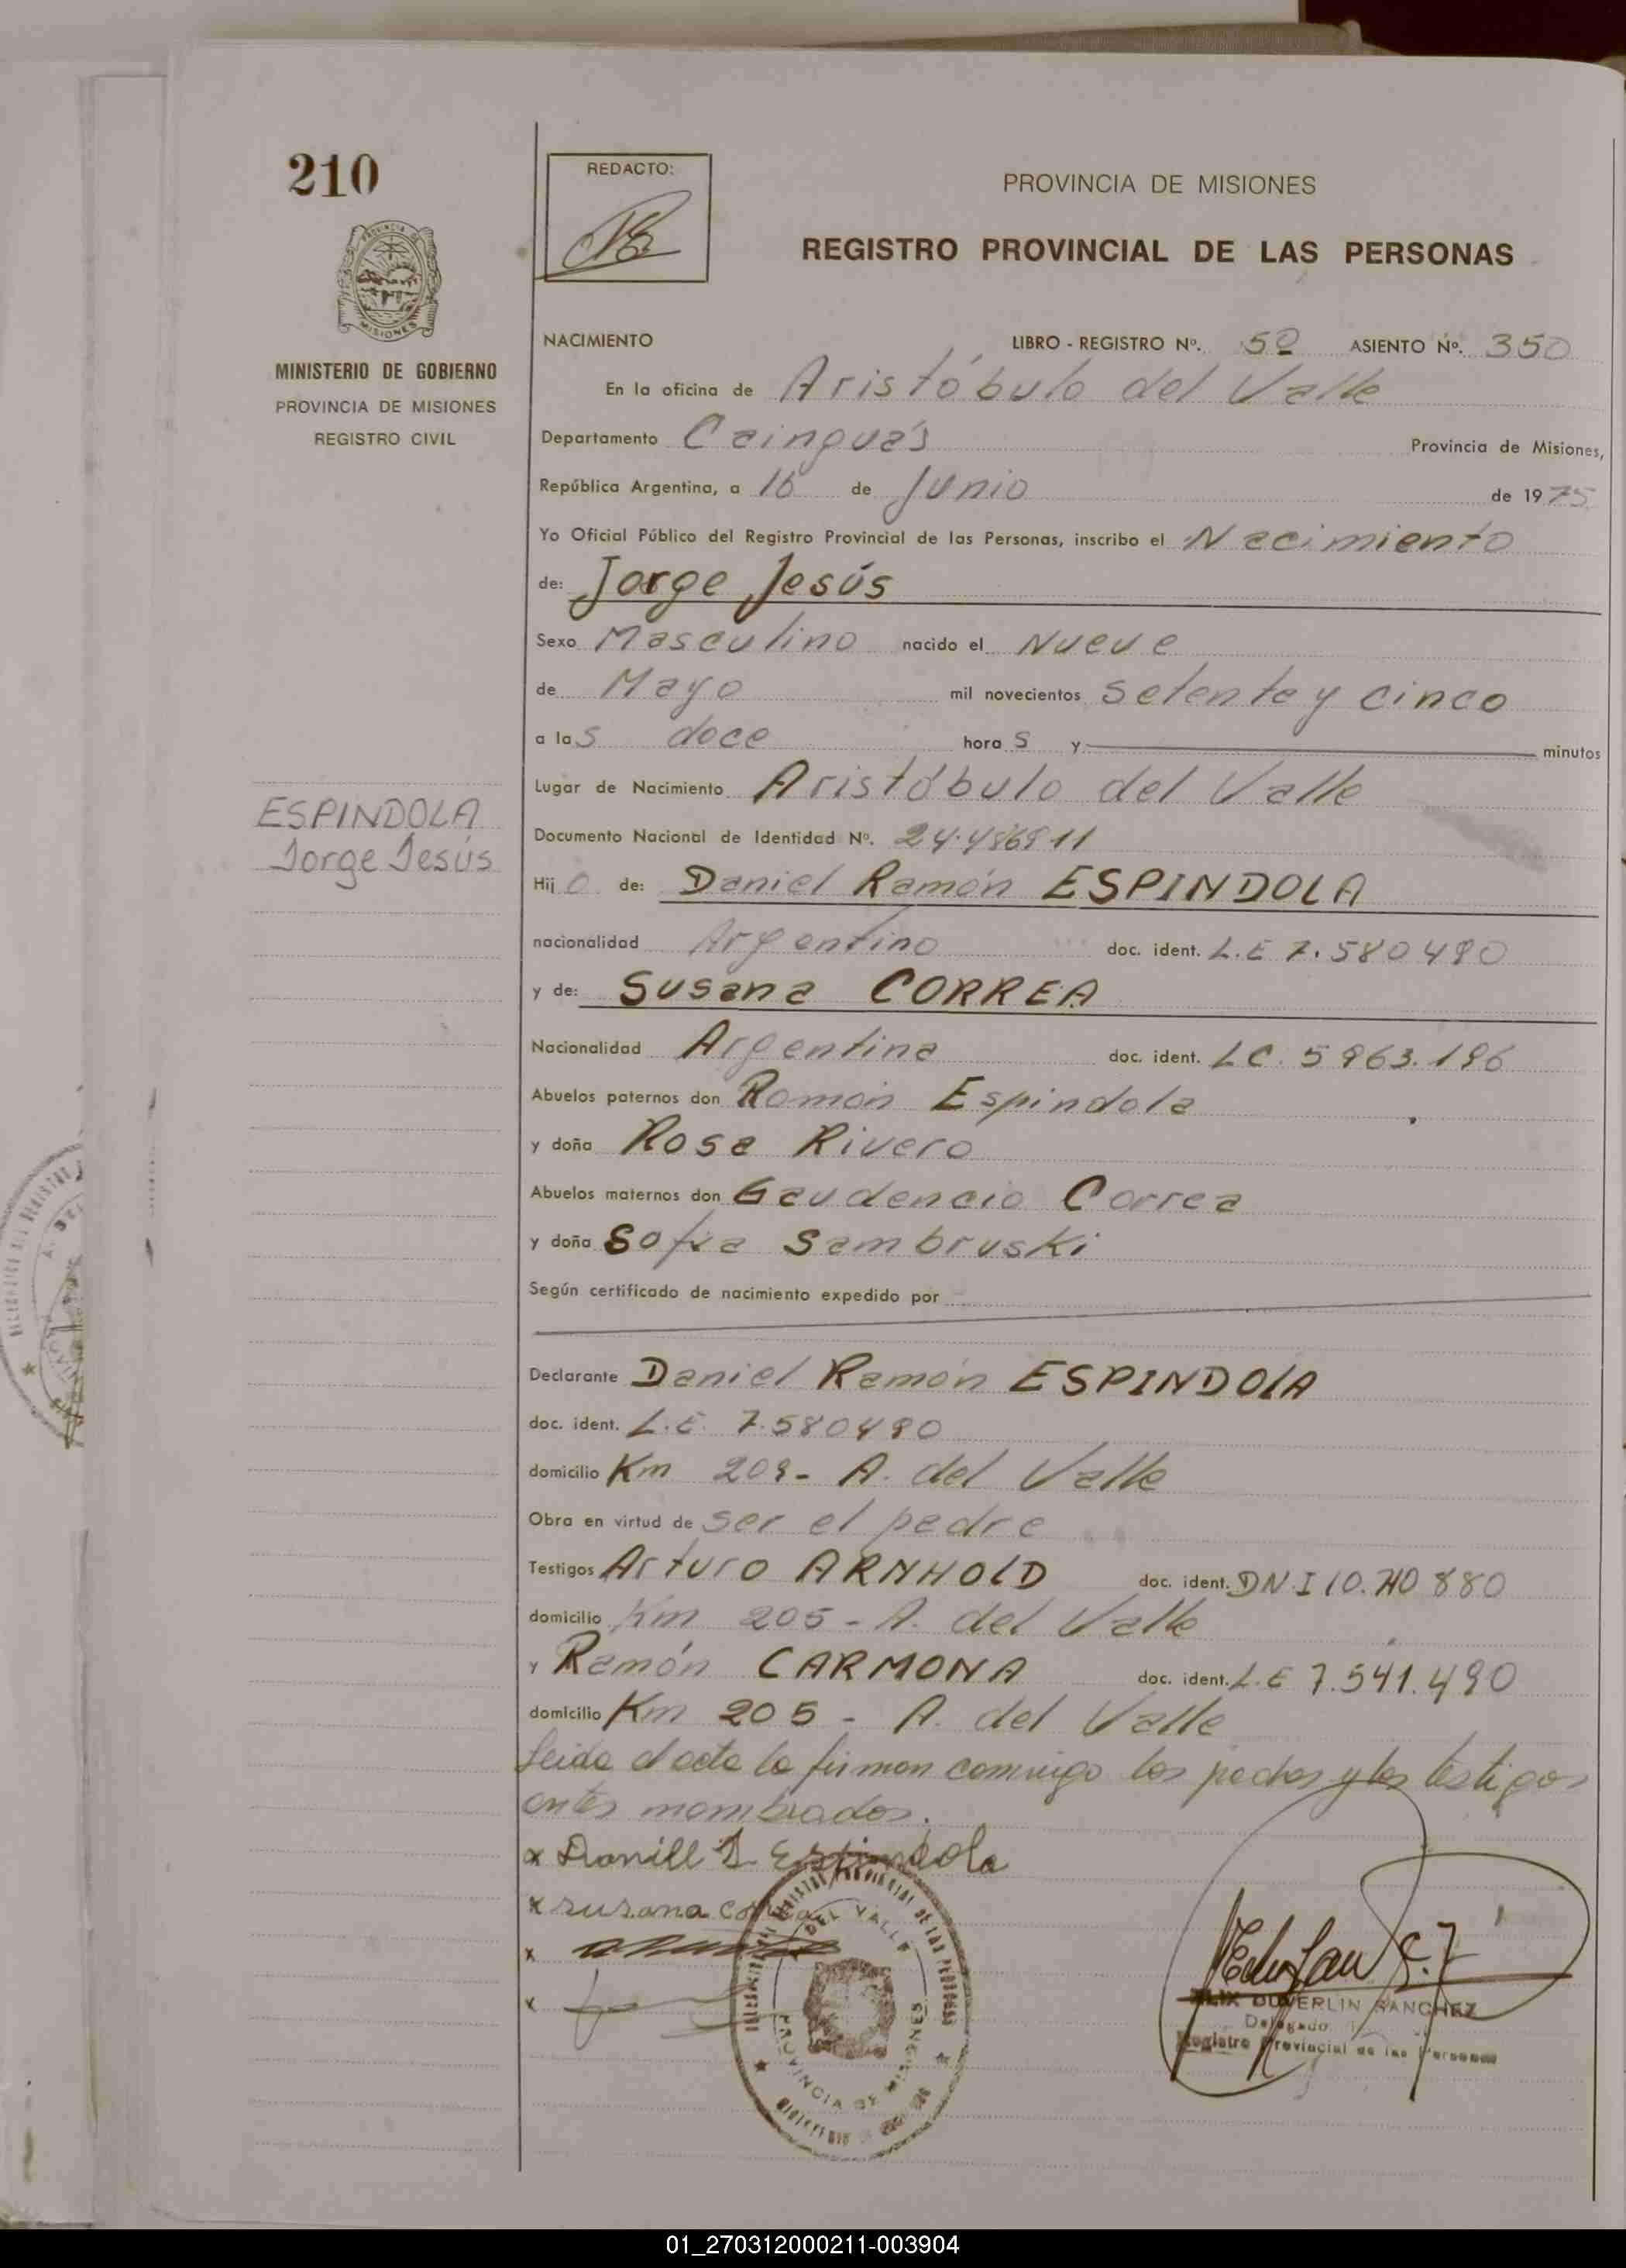 210
REDACTO:
PROVINCIA DE MISIONES
REGISTRO PROVINCIAL DE LAS PERSONAS
PROVINCIA DE
MISIONES
MINISTERIO DE GOBIERNO
PROVINCIA DE MISIONES
REGISTRO CIVIL
NACIMIENTO LIBRO - REGISTRO Nº. 52 ASIENTO Nº. 350
En la oficina de Aristóbulo del Valle
Departamento Cainguás Provincia de Misiones,
República Argentina, a 16 de Junio de 1975
Yo Oficial Público del Registro Provincial de las Personas, inscribo el Nacimiento
de: Jorge Jesús
Sexo Masculino nacido el Nueve
de Mayo mil novecientos setenta y cinco
a las doce horas y minutos
Lugar de Nacimiento Aristóbulo del Valle
ESPINDOLA
Jorge Jesús
Documento Nacional de Identidad Nº.
Hijo de: Daniel Ramón ESPINDOLA
nacionalidad Argentino doc. ident. L.E 7.580490
y de: Susana CORREA
Nacionalidad Argentina doc. ident. LC. 5963.196
Abuelos paternos don Ramón Espindola
y doña Rosa Rivero
Abuelos maternos don Gaudencio Correa
y doña Sofia Sambruski
Según certificado de nacimiento expedido por
Declarante Daniel Ramón ESPINDOLA
doc. ident. L.E. 7.580490
domicilio Km 209- A. del Valle
Obra en virtud de ser el padre
Testigos Arturo ARNHOLD doc. ident. DNI 10.
domicilio Km 205 - A. del Valle
y Ramón CARMONA doc. ident. L.E 7.541.490
domicilio Km 205 - A. del Valle
Leida el acta la firman conmigo los padres y los testigos
antes nombrados.
x Daniell Espindola
x susana correa
x
x
DEL VALLE
PROVINCIA DE MISIONES
FELIX DUVERLIN SANCHEZ
Delegado
Registro Provincial de las Personas
01_270312000211-003904